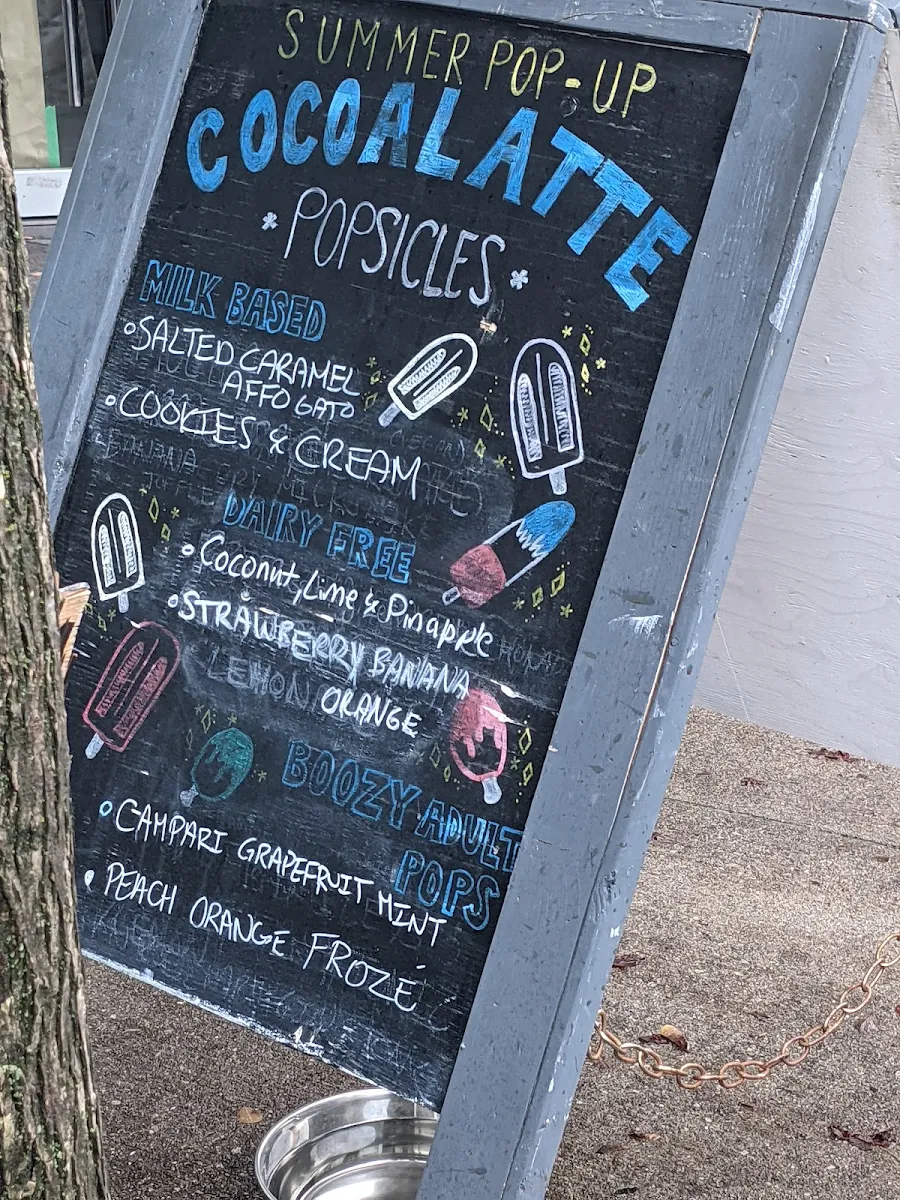 SUMMER POP-UP
COCOALATTE
* POPSICLES *
MILK BASED
• SALTED CARAMEL
AFFOGATO
• COOKIES & CREAM
BANANA
DAIRY FREE
• Coconut, Lime & Pinapple
• STRAWBERRY BANANA
LEMON
ORANGE
BOOZY ADULT
POPS
• CAMPARI GRAPEFRUIT MINT
• PEACH ORANGE FROZÉ